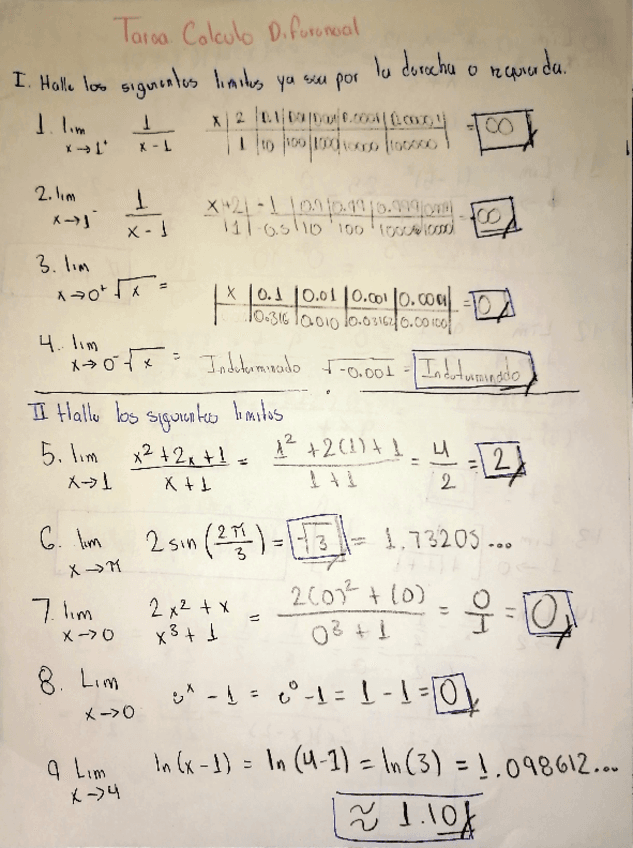 Tarea Calculo Diferencial
I. Halle los siguientes limites ya sea por la derecha o izquierda.
1. lim x→1⁺ 1/(x-1) x | 2 | | | | 0.0001 | = ∞
1 | 10 | 100 | 1000 | 10000 | 100000
2. lim x→1⁻ 1/(x-1) -1 | 0.9 | 0.99 | 0.999 ∞
-0.5 | 10 | 100
3. lim x→0⁺ √x = x | 0.1 | 0.01 | 0.001 | 0.0001 = 0
0.316 | 0.010 | 0.03162 | 0.00100
4. lim x→0⁻ √x = Indeterminado √-0.001 = Indeterminado
II Halle los siguientes limites
5. lim x→1 (x²+2x+1)/(x+1) = (1²+2(1)+1)/(1+1) = 4/2 = 2
6. lim x→π 2 sin (2π/3) = √3 = 1.73205...
7. lim x→0 2x²+x x³+1 = (2(0)²+(0))/(0³+1) = 0/1 = 0
8. Lim x→0 eˣ-1 = e⁰-1 = 1-1 = 0
9 Lim x→4 ln(x-1) = ln(4-1) = ln(3) = 1.098612...
≈ 1.10